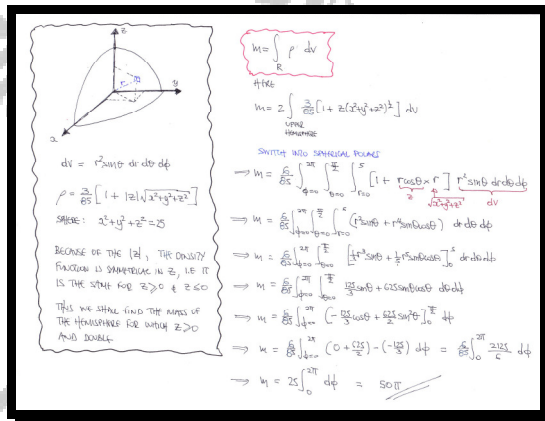 z
y
x
r
dv = r² sinθ dr dθ dϕ
ρ = 3/85 [1 + |z|√x²+y²+z²]
SPHERE: x²+y²+z² = 25
BECAUSE OF THE |z|, THE DENSITY
FUNCTION IS SYMMETRICAL IN Z, I.E IT
IS THE SAME FOR Z≥0 & Z≤0
THUS WE SHALL FIND THE MASS OF
THE HEMISPHERE FOR WHICH Z≥0
AND DOUBLE
m = ∫_R ρ dv
HERE
m = 2 ∫ 3/85 [1 + z(x²+y²+z²)^½] dv
UPPER
HEMISPHERE
SWITCH INTO SPHERICAL POLARS
⇒ m = 6/85 ∫_{ϕ=0}^{2π} ∫_{θ=0}^{π/2} ∫_{r=0}^{5} [1 + rcosθ × r] r² sinθ dr dθ dϕ
z √x²+y²+z² dv
⇒ m = 6/85 ∫_{ϕ=0}^{2π} ∫_{θ=0}^{π/2} ∫_{r=0}^{5} (r² sinθ + r⁴ sinθcosθ) dr dθ dϕ
⇒ m = 6/85 ∫_{ϕ=0}^{2π} ∫_{θ=0}^{π/2} [⅓r³ sinθ + ⅕r⁵ sinθcosθ]_0^5 dθ dϕ
⇒ m = 6/85 ∫_{ϕ=0}^{2π} ∫_{θ=0}^{π/2} 125/3 sinθ + 625 sinθcosθ dθ dϕ
⇒ m = 6/85 ∫_{ϕ=0}^{2π} [-125/3 cosθ + 625/2 sin²θ]_0^{π/2} dϕ
⇒ m = 6/85 ∫_{ϕ=0}^{2π} (0 + 625/2) - (-125/3) dϕ = 6/85 ∫_0^{2π} 2125/6 dϕ
⇒ m = 25 ∫_0^{2π} dϕ = 50π